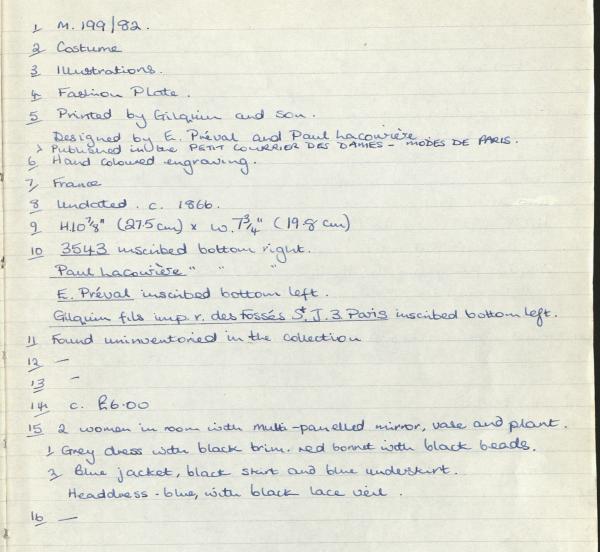 1 M. 199/82.
2 Costume
3 Illustrations.
4 Fashion Plate.
5 Printed by Gilquin and Son.
Designed by E. Préval and Paul Lacourière
> Published in the PETIT COURRIER DES DAMES - MODES DE PARIS.
6 Hand coloured engraving.
7 France
8 Undated. c. 1866.
9 H.10 7/8" (27.5cm) x W. 7 3/4" (19.8cm)
10 3543 inscribed bottom right.
Paul Lacourière " " "
E. Préval inscribed bottom left.
Gilquin fils imp. r. des Fossés St. J. 3 Paris inscribed bottom left.
11 Found uninventoried in the collection
12 —
13 -
14 c. £6.00
15 2 women in room with multi-panelled mirror, vase and plant.
1 Grey dress with black trim. red bonnet with black beads.
2 Blue jacket, black skirt and blue underskirt.
Headdress - blue, with black lace veil.
16 —